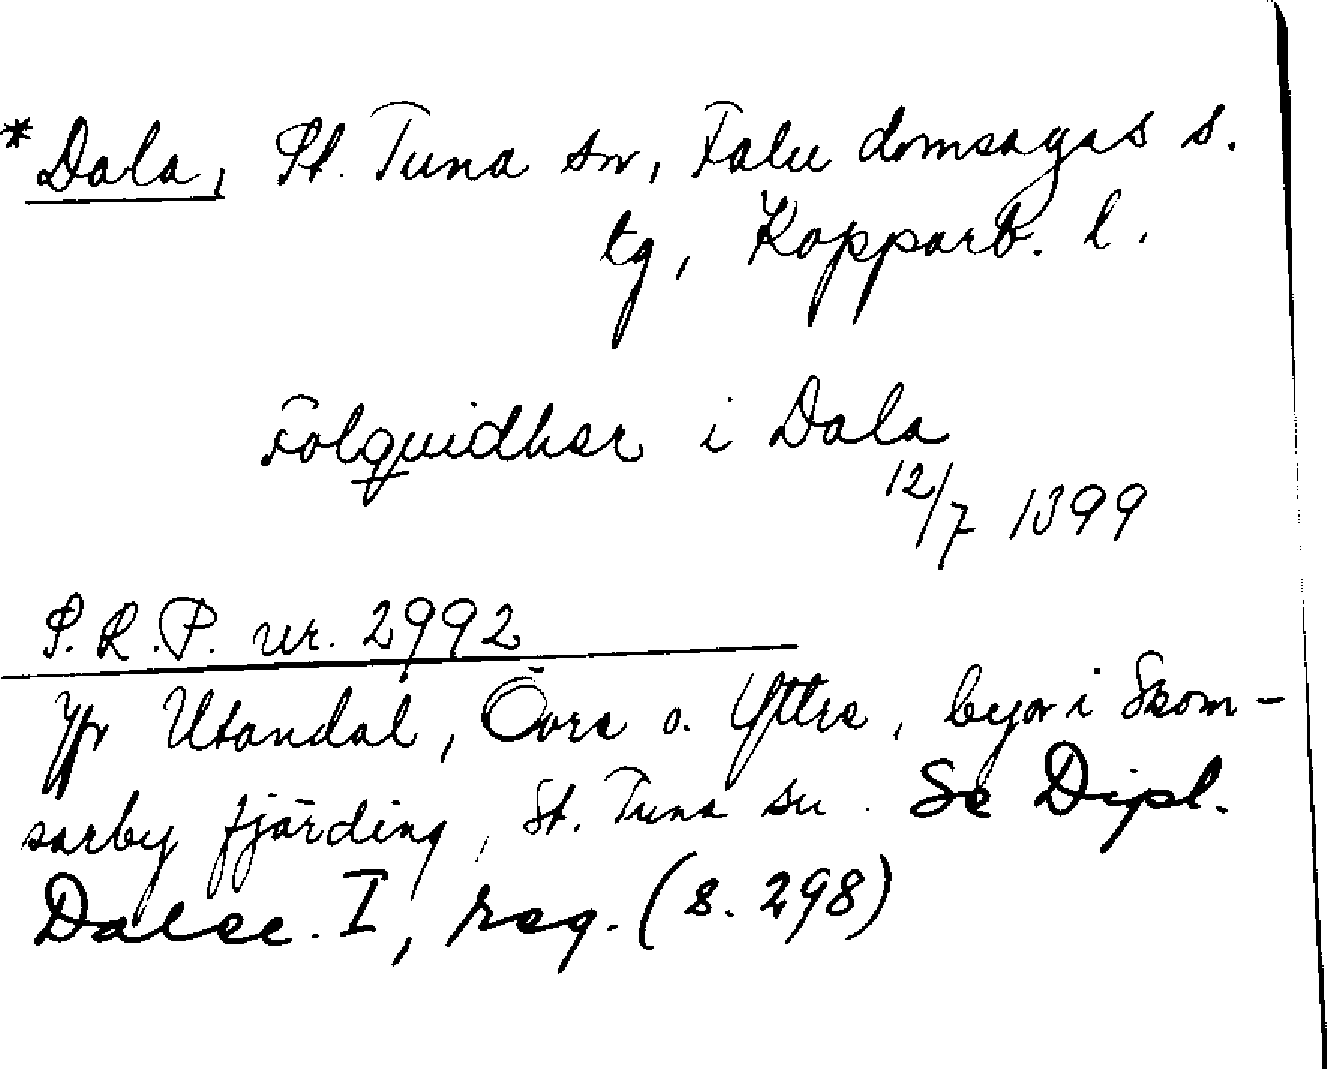 *Dala, St. Tuna sn, Falu domsagas s.
tg, Kopparb. l.
Folquidher i Dala
12/7 1399
S.R.P. nr. 2992
Jfr Utandal, Övre o. Yttre, byar i Skom-
sarby fjärding, St. Tuna sn. Se Dipl.
Dalec. I, reg. (s. 298)